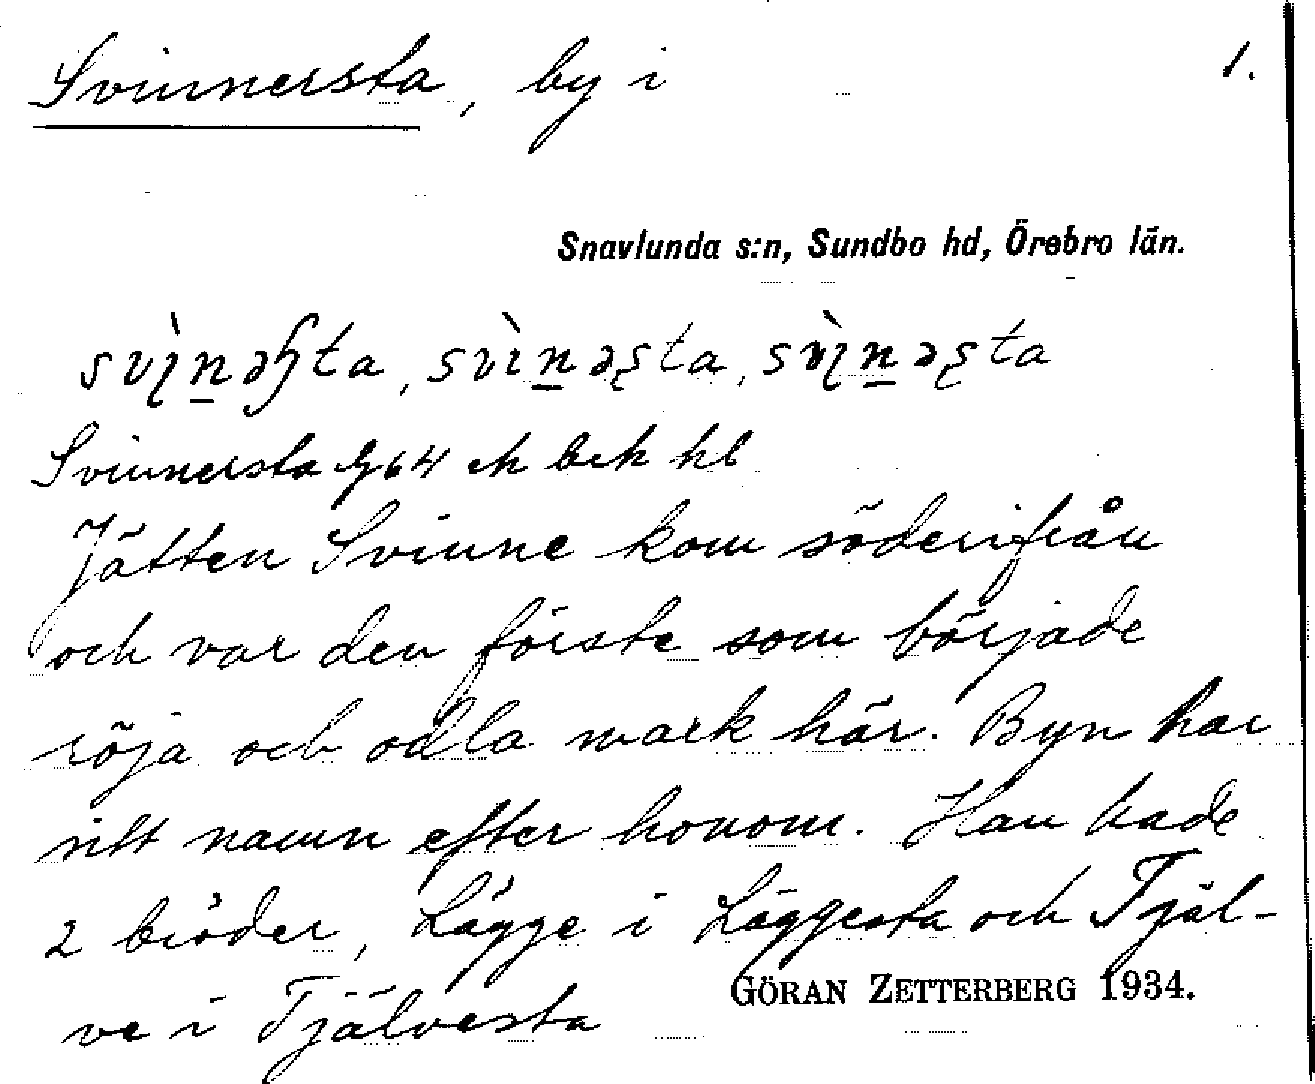 Svinnersta, by i 1.
Snavlunda s:n, Sundbo hd, Örebro län.
Svinnersta G64 ek bek hl
Jätten Svinne kom söderifrån
och var den förste som började
röja och odla mark här. Byn har
sitt namn efter honom. Han hade
2 bröder, Lägge i Läggesta och Tjäl-
ve i Tjälvesta
GÖRAN ZETTERBERG 1934.